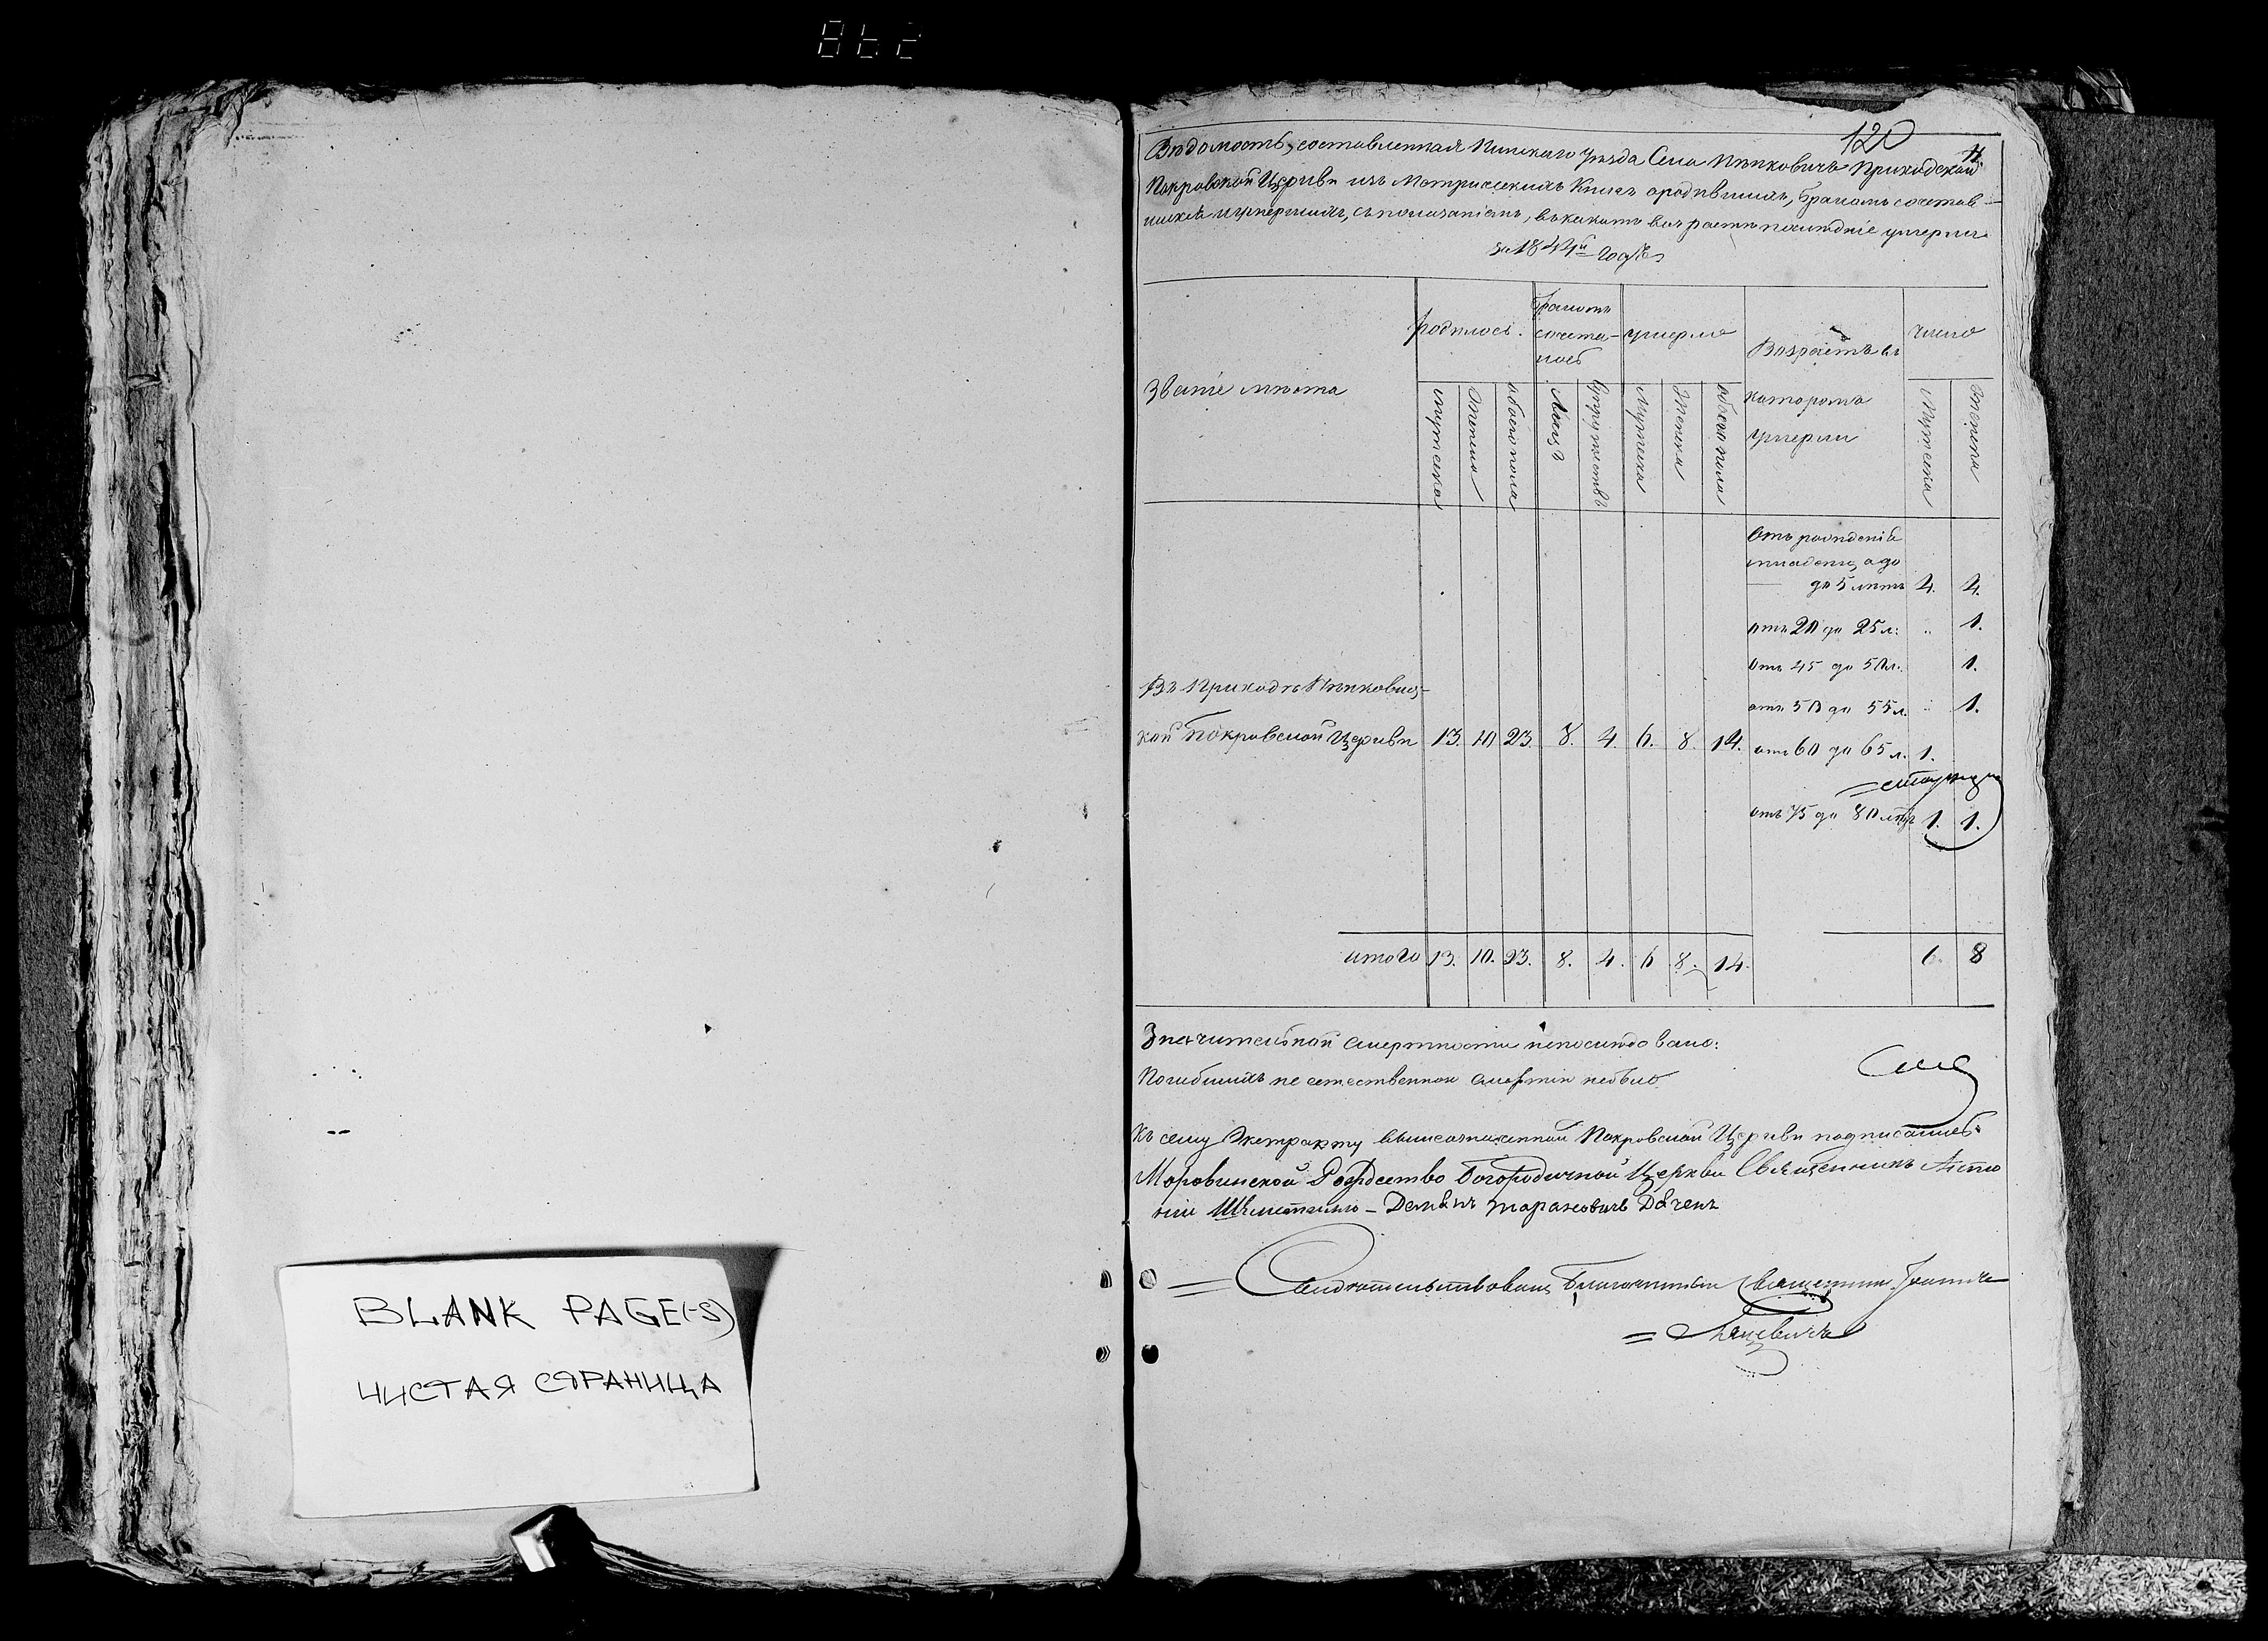 862
120
Вѣдомость, составленная Пинскаго уѣзда Села Пѣнковичъ Приходской
Покровской Церкви изъ Метрическихъ Книгъ о родившихъ, бракомъ сочетав-
шихся и умершихъ, съ показаніемъ, въ какомъ возрастѣ послѣдніе умерли
за 1844й годъ
Званіе мѣста
родилось.
Бракомъ
сочета-
лось
умерло
Возрастъ въ
которомъ
умерли
число
мужеска
женска
обоего пола
Лицъ
Супружествъ
Мужеска
Женска
обоего пола
Мужеска
Женска
Отъ рожденія
младенц. а до
до 5 лѣтъ 4. 4.
отъ 20 до 25 л: .. 1.
отъ 45 до 50 л. 1.
отъ 50 до 55 л. .. 1.
Въ Приходѣ Пѣнковиц-
кой Покровской Церкви 13. 10 23. 8. 4. 6. 8. 14. отъ 60 до 65 л. 1.
отъ 75 до 80 лѣтъ 1. 1.
итого 13. 10. 23. 8. 4. 6 8. 14. 6. 8
Значительной смертности непослѣдовало:
Погибшихъ не естественною смертію небыло
Къ сему Экстракту вышеозначенной Покровской Церкви подписались
Моровинской Рождество Богородичной Церкви Священникъ Анто
ній — Демьянъ Тарановичъ Дьячекъ
Свидѣтельствовалъ Благочинный Священникъ
BLANK PAGE(-S)
ЧИСТАЯ СТРАНИЦА